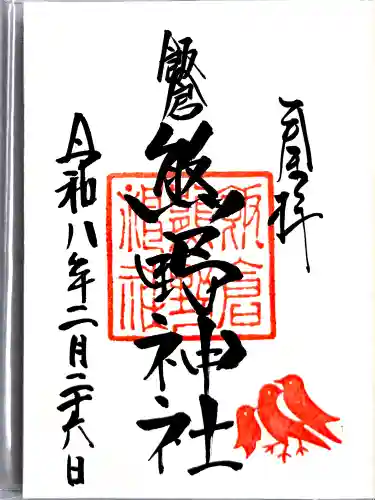 奉拝
飯倉
熊野神社
飯倉
熊野
神社
令和八年二月二十六日